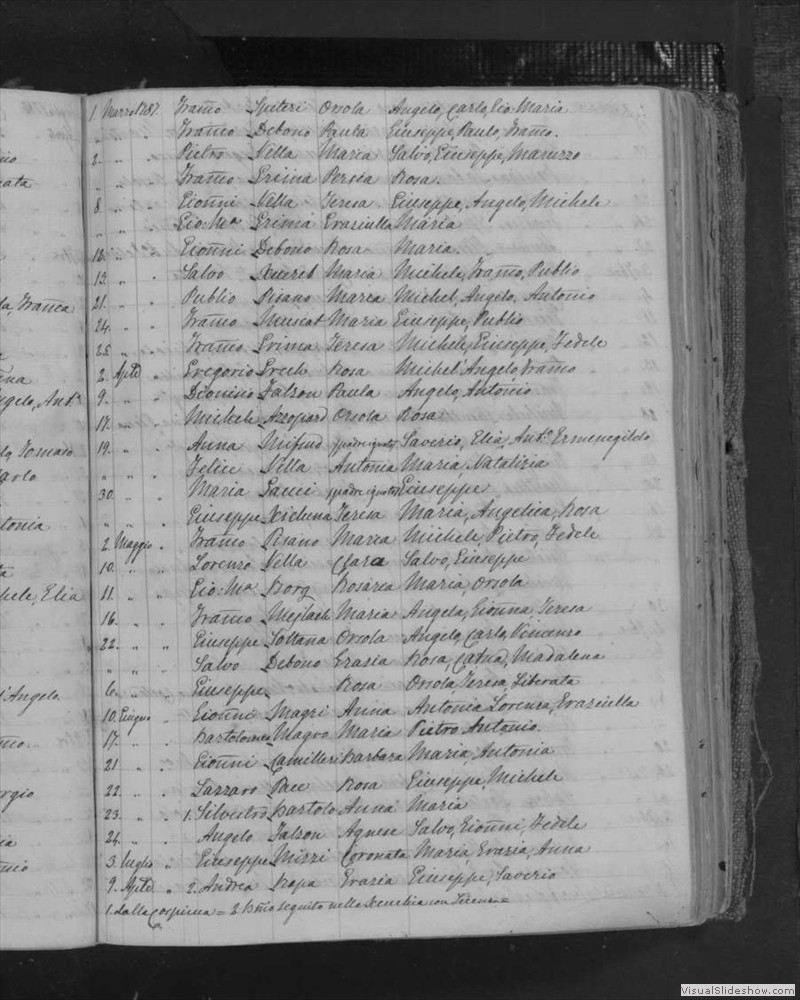 1. Marzo 1787. Franco Spiteri Orsola Angelo, Carlo, Gio Maria
" " Franco Debono Paula Giuseppe, Paulo, Franco.
2. " " Pietro Vella Maria Salvo, Giuseppe, Maruzzo
" " Franco Grima Persia Rosa.
8. " " Gionni Vella Teresa Giuseppe, Angelo, Michele
" " Gio: Ma Grima Graziulla Maria
12. " " Gionni Debono Rosa Maria.
13. " " Salvo Xuereb Maria Michele, Franco, Publio
21. " " Publio Pisano Marea Michel, Angelo, Antonio
24. " " Franco Muscat Maria Giuseppe, Publio
25. " " Franco Grima Teresa Michele, Giuseppe, Fedele
2. Aple " Gregorio Grech Rosa Michel'Angelo, Franco
9. " " Dionisio Falzon Paula Angelo, Antonio
17. " " Michele Azzopard Orsola Rosa
19. " " Anna Mifsud Saverio, Elia, Anto Ermenegildo
" " Felice Vella Antonia Maria Natalizia
30. " " Maria Gauci Giuseppe
" " " Giuseppe Xicluna Teresa Maria, Angelica, Rosa
2. Maggio " Franco Pisano Marea Michele, Pietro, Fedele
10. " " Lorenzo Vella Clara Salvo, Giuseppe
11. " " Gio: Ma Borg Rosarea Maria Orsola
16. " " Franco Mejlach Maria Angela, Gionna, Teresa
22. " " Giuseppe Sottana Orsola Angelo, Carlo, Vincenzo
" " " Salvo Debono Grazia Rosa, Catna, Madalena
6. " " Giuseppe Rosa Orsola, Teresa, Liberata
10. Giugno " Gionni Magri Anna Antonia Lorenza, Graziulla
17. " " Bartolomeo Magro Maria Pietro Antonio.
21 " " Gionni Camilleri Barbara Maria, Antonia
22. " " Lazzaro Pace Rosa Giuseppe, Michele
23. " " 1. Silvestro Bartolo Anna Maria
24. " " Angelo Falzon Agnese Salvo, Gionni, Fedele
3 luglio " Giuseppe Mizzi Coronata Maria Grazia, Anna
9. " 2. Andrea Grazia Giuseppe, Saverio
1. dalla Cospicua = 2. seguito nella con =
o
nata
la, Franca
gelo, Anto
Tomaso
Carlo
tonia
ta
Elia
l'Angelo
mo.
orgio
ia
nio
VisualSlideshow.com